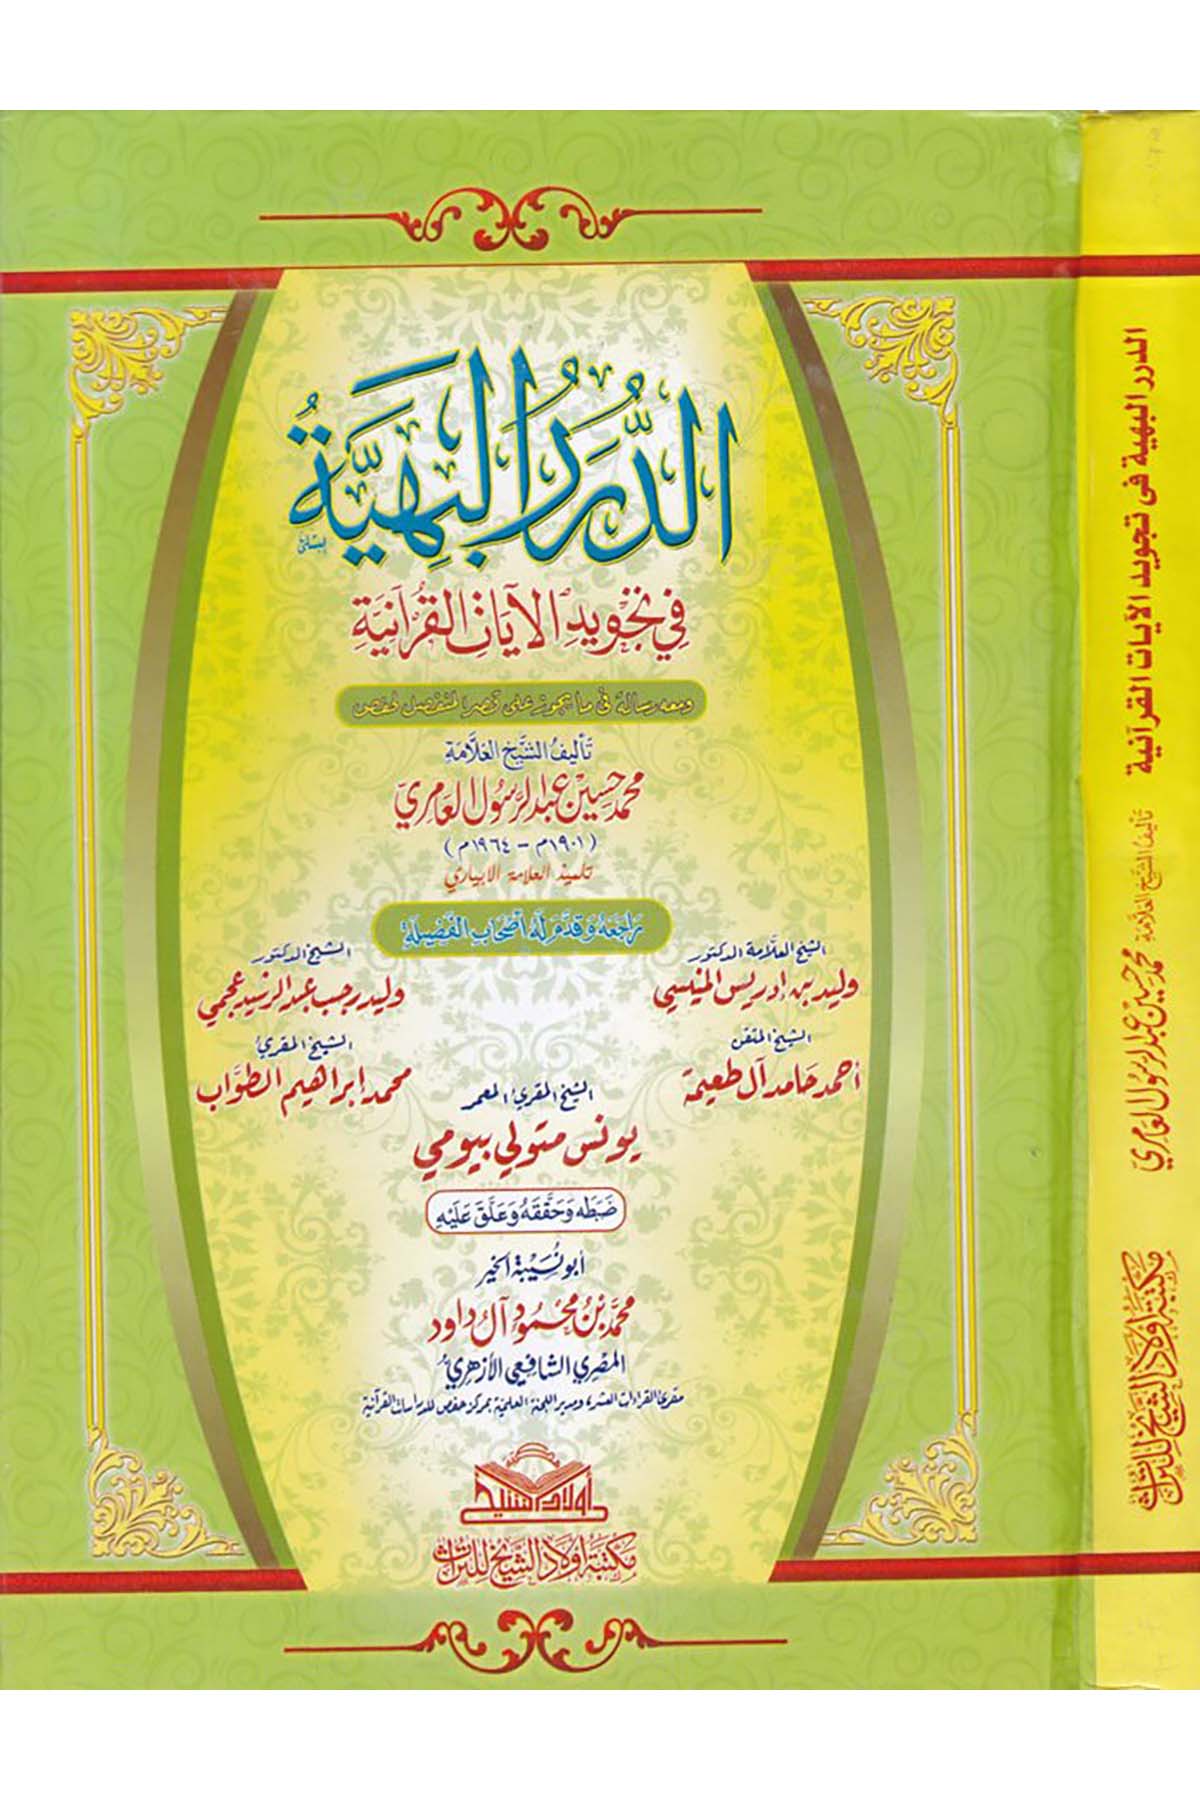 الدُّرَرُ البَهِيَّةُ
فِي تَجْوِيدِ الآيَاتِ القُرْآنِيَّةِ
ومعه رسالة في ما يجوز على قصر المنفصل لحفص
تَأليفُ الشَّيْخِ العَلَّامَةِ
محمد حسين عبد الرسول العامري
(١٩٠١م - ١٩٦٤م)
تلميذ العلامة الأبياري
رَاجَعَهُ وَقَدَّمَ لَهُ أَصْحَابُ الفَضِيلَةِ
الشيخ العلامة الدكتور
وليد بن إدريس المنيسي
الشيخ الدكتور
وليد رجب عبد الرشيد عجمي
الشيخ المتقن
أحمد حامد آل طعيمة
الشيخ المقرئ
محمد إبراهيم الطواب
الشيخ المقرئ المعمر
يونس متولي بيومي
ضَبَطَه وَحَقَّقَهُ وَعَلَّقَ عَلَيْهِ
أبو نُسَيْبَة الخير
محمَّد بْنُ محمُود آل داود
المصري الشافعي الأزهري
مقرئ القراءات العشر، ومدير اللجنة العلمية بمركز حفص للدراسات القرآنية
مكتبة
أولاد الشيخ
مكتبة أولاد الشيخ للتراث
الدرر البهية في تجويد الآيات القرآنية
تأليف الشيخ العلامة
محمد حسين عبد الرسول العامري
مكتبة أولاد الشيخ للتراث